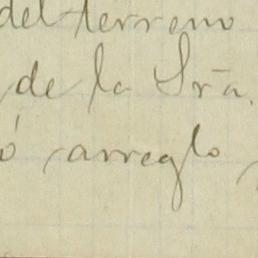 del terreno
de la Sra.
ó arreglo